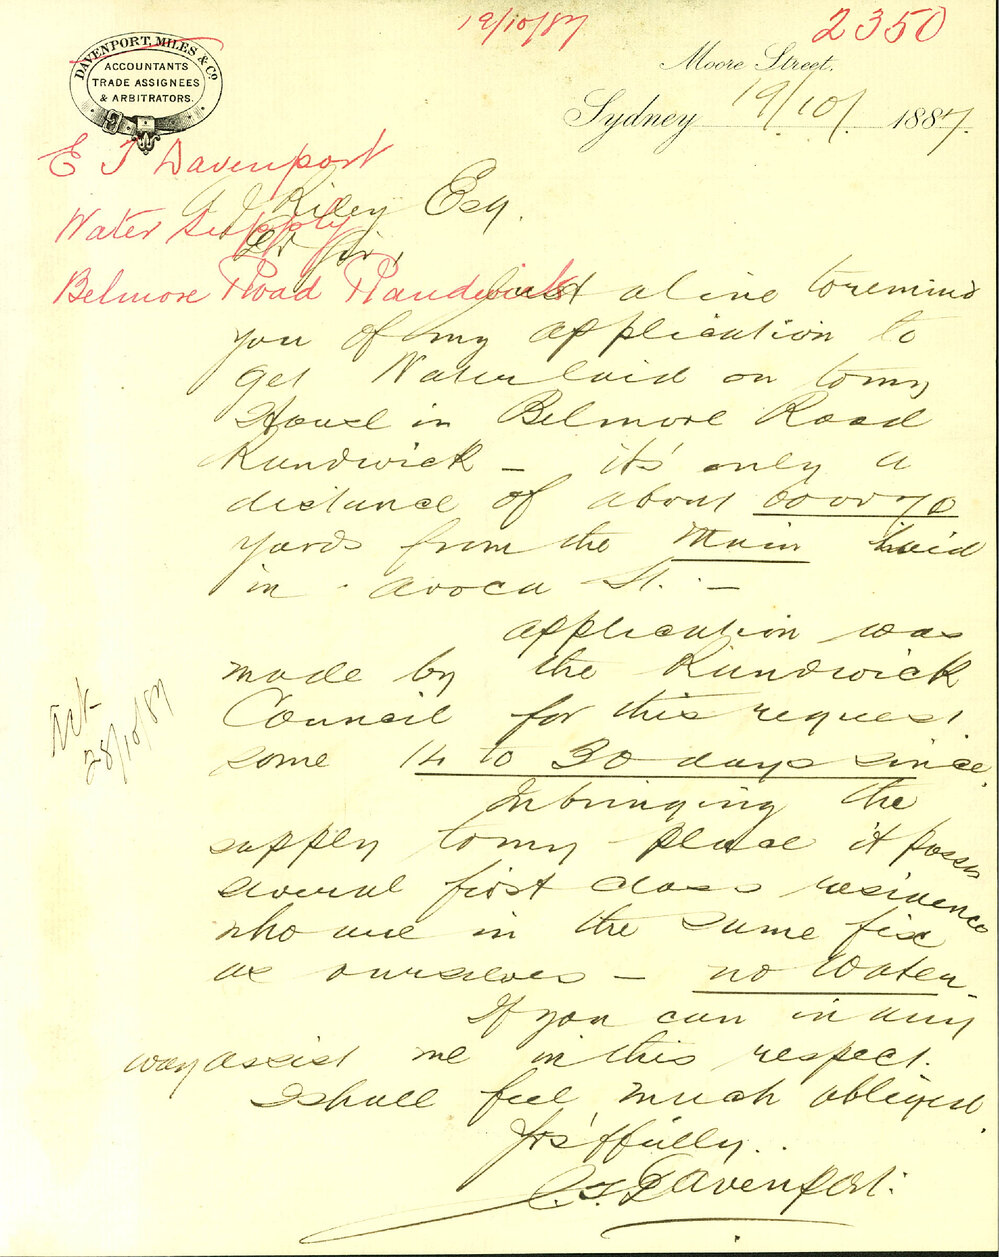 19/10/87
2350
DAVENPORT, MILES & Co
ACCOUNTANTS
TRADE ASSIGNEES
& ARBITRATORS.
Moore Street.
Sydney 19/10/ 1887.
E T Davenport
Water Supply
Belmore Road Randwick
Riley Esq.
Dr Sir,
Just a line to remind
you of my application to
get Water laid on to my
House in Belmore Road
Randwick – it's only a
distance of about 70
yards from the Main laid
in Avoca St. –
Application was
made by the Randwick
Council for this request
some 14 to 30 days since.
In bringing the
supply to my place it passes
several first class residence
who are in the same fix
as ourselves – no Water.
If you can in any
way assist me in this respect.
I shall feel much obliged.
Yrs ffully
Davenport.
28/10/87